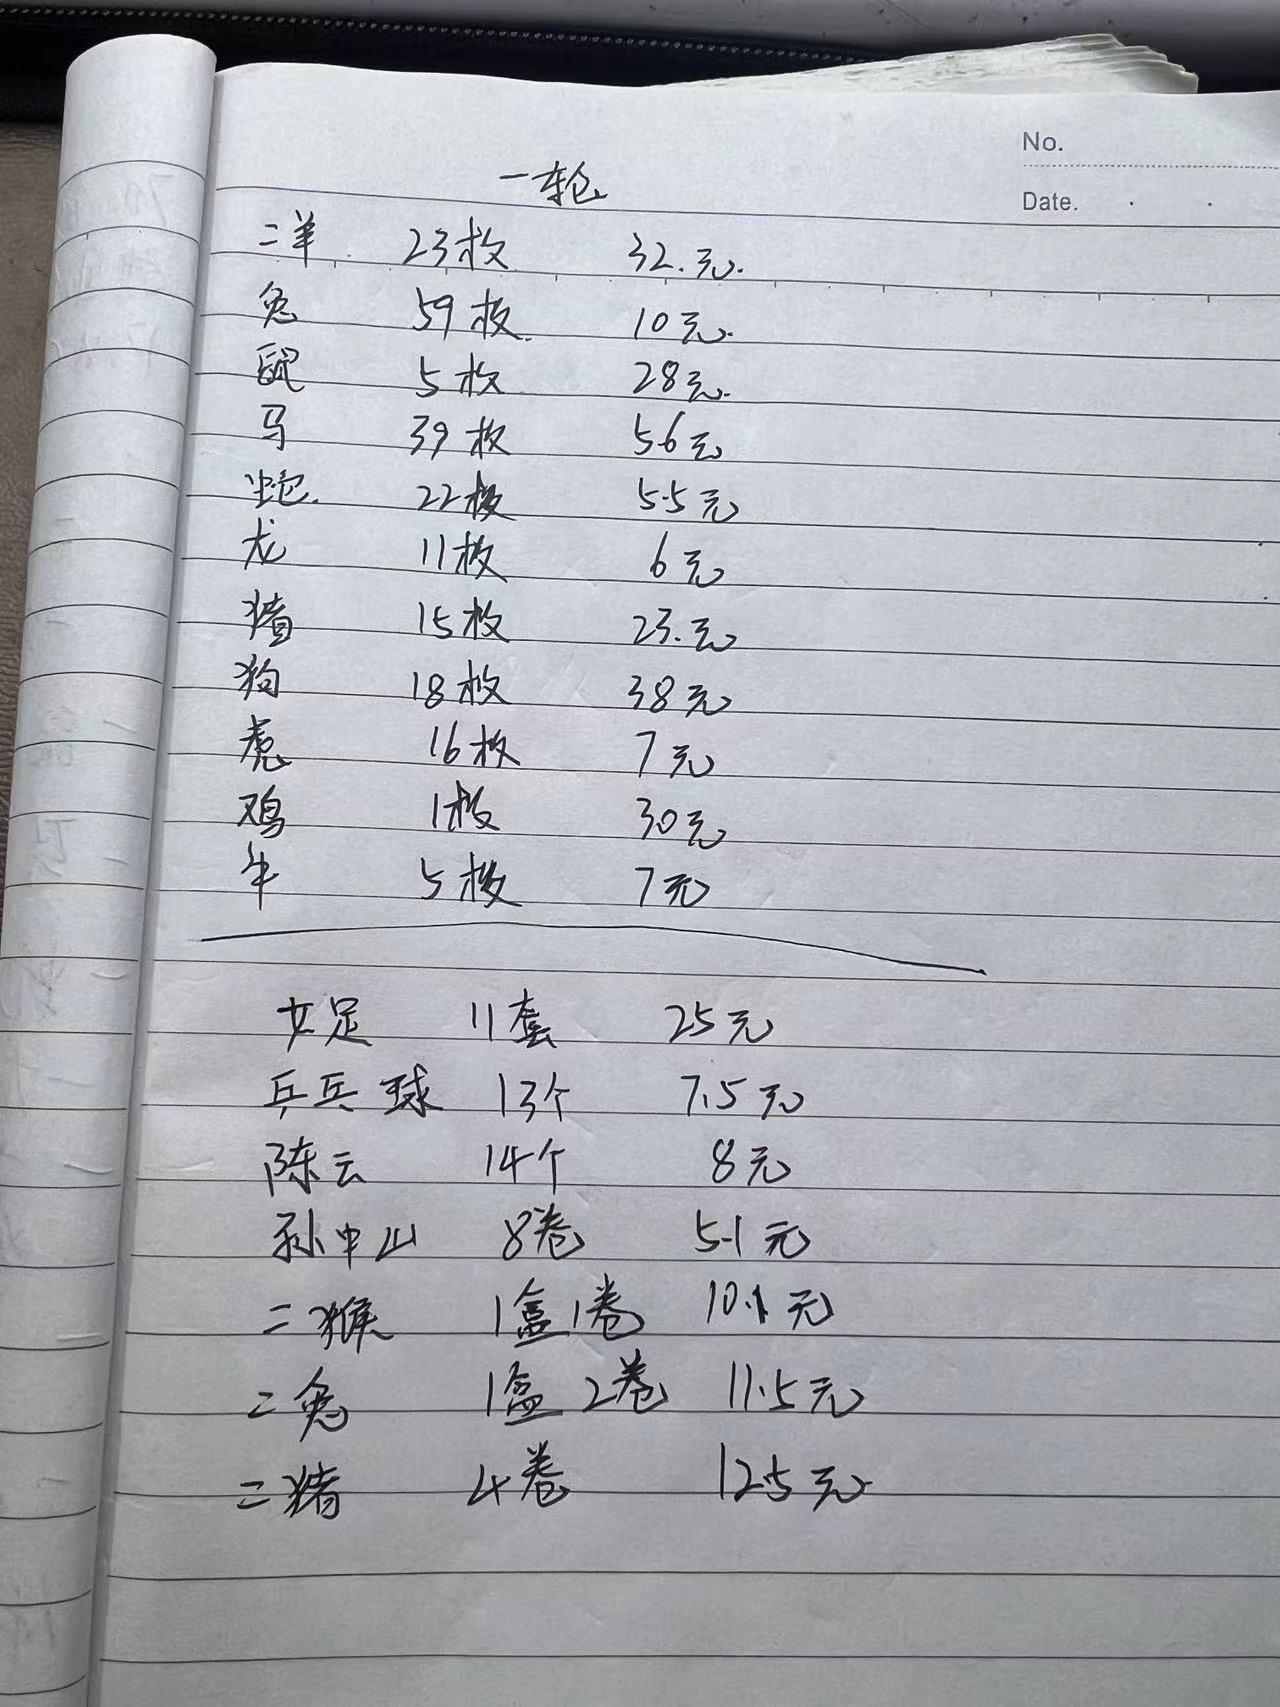 No.
Date.
一轮
二羊 23枚 32.元.
兔 59枚. 10元.
鼠 5枚 28元.
马 39枚 56元
蛇. 22枚 5.5元
龙 11枚 6元
猪 15枚 23.元
狗 18枚 38元
虎 16枚 7元
鸡 1枚 30元
牛 5枚 7元
女足 11套 25元
乒乓球 13个 7.5元
陈云 14个 8元
孙中山 8卷 5.1元
二猴 1盒1卷 10.1元
二兔 1盒2卷 11.5元
二猪 4卷 12.5元